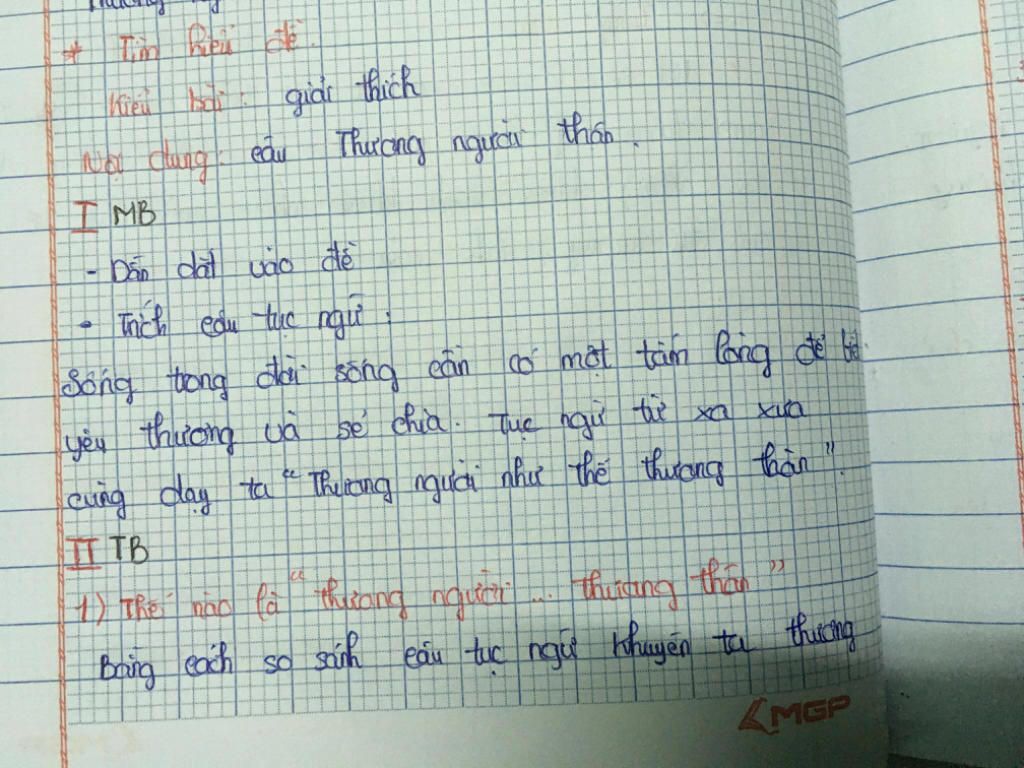 * Tìm hiểu đề.
Kiểu bài: giải thích
Nội dung: câu Thương người thân.
I MB
- Dẫn dắt vào đề
- Trích câu tục ngữ.
Sống trong đời sống cần có một tấm lòng để
yêu thương và sẻ chia. Tục ngữ từ xa xưa
cũng dạy ta "Thương người như thể thương thân".
II TB
1) Thế nào là "thương người... thương thân"
Bằng cách so sánh câu tục ngữ khuyên ta thương
MGP